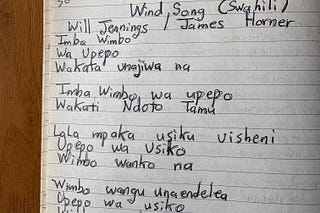 Wind Song (Swahili)
Will Jennings / James Horner
Imba Wimbo
Wa Upepo
Wakata unajiwa na
Imba Wimbo, wa upepo
Wakati Ndoto Tamu
Lala mpaka usiku visheni
Upepo wa Usiko
Wimbo wanko na
Wimbo wangu unaendelea
Upepo wa usiko